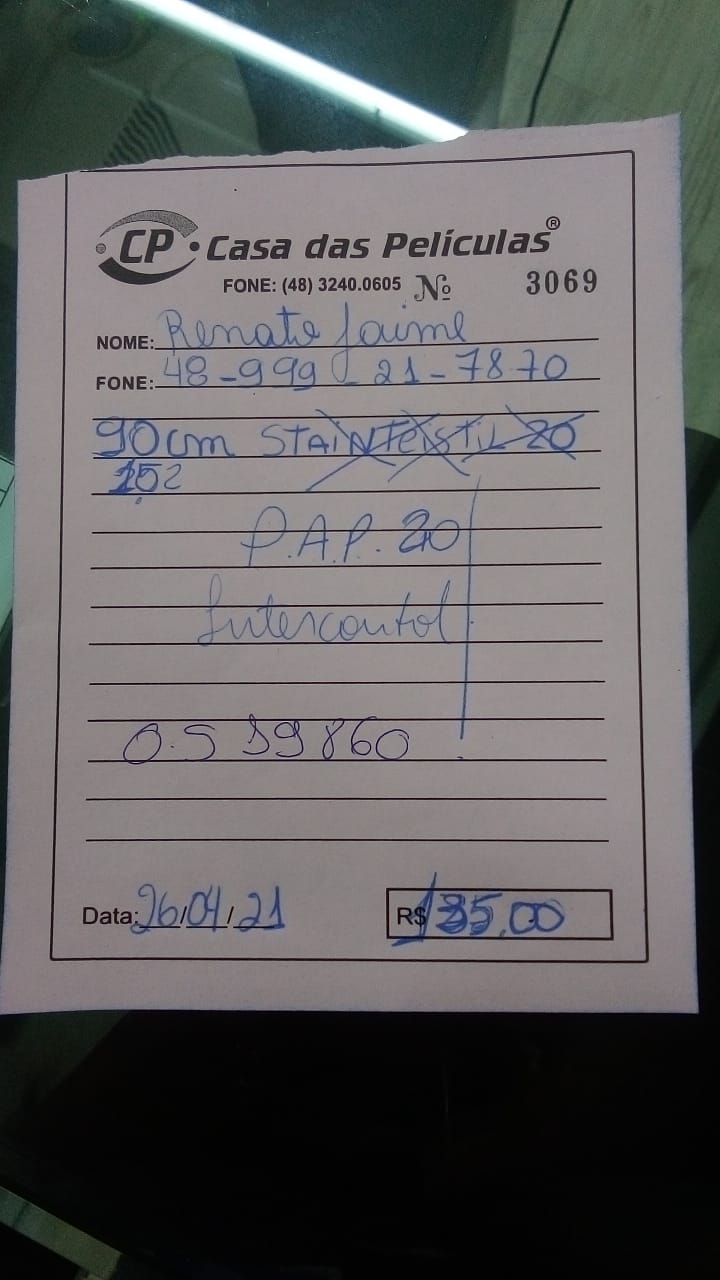 CP Casa das Películas®
FONE: (48) 3240.0605 Nº 3069
NOME: Renato Jaime
FONE: 48-999 21-7870
90cm
152
P.A.P. 20
Intercontol
O.S 19860
Data: 26/04/21 R$ 135,00